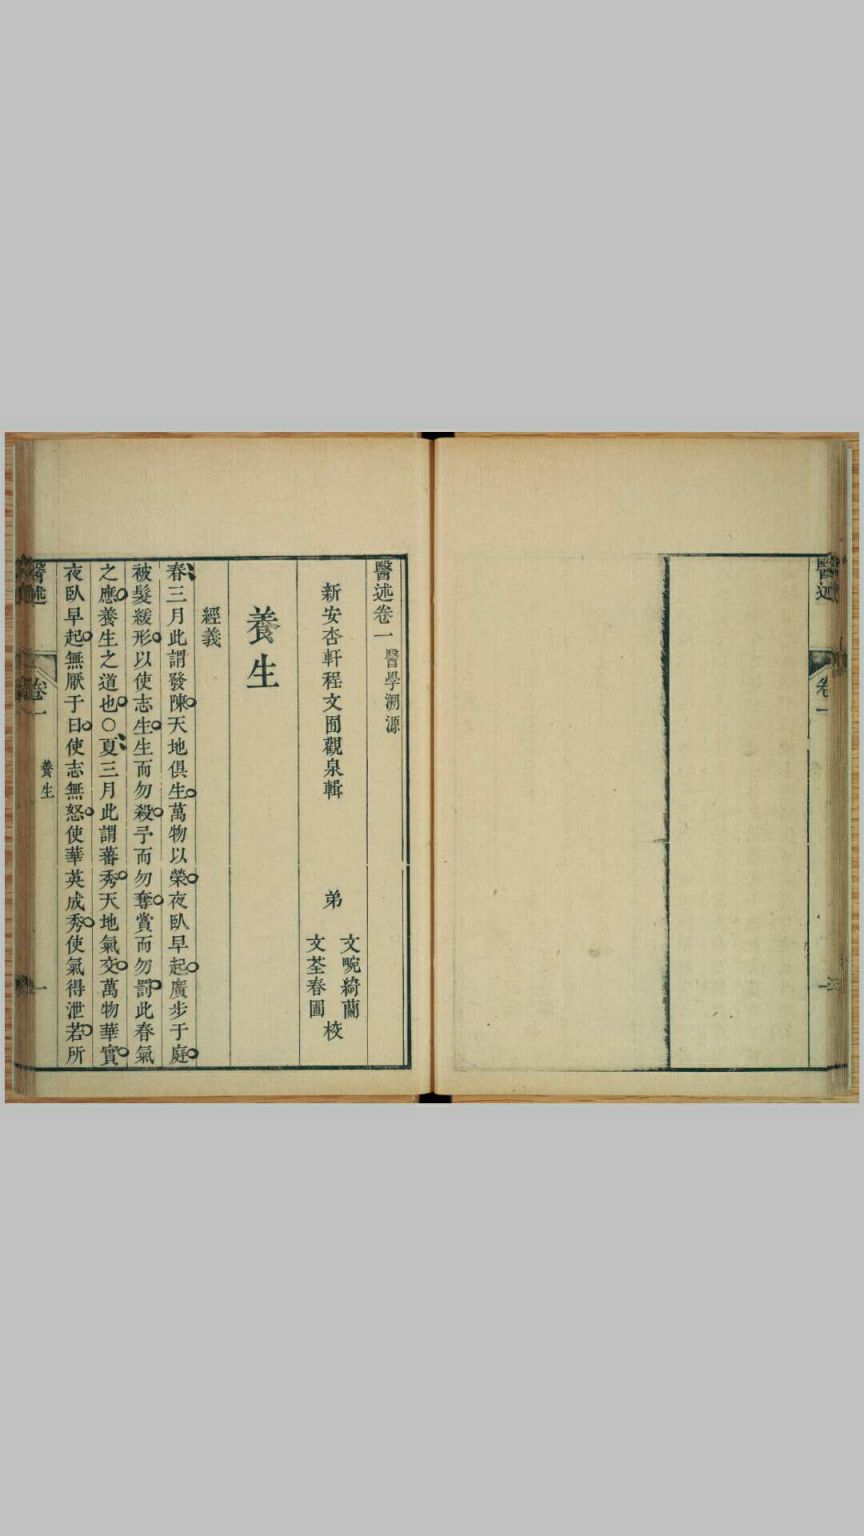 醫述
卷一
醫述卷一 醫學溯源
新安杏軒程文囿觀泉輯
弟
文畹綺蘭
文荃春圃
校
養生
經義
春三月此謂發陳天地俱生萬物以榮夜臥早起廣步于庭
被髮緩形以使志生生而勿殺予而勿奪賞而勿罰此春氣
之應養生之道也○夏三月此謂蕃秀天地氣交萬物華實
夜臥早起無厭于日使志無怒使華英成秀使氣得泄若所
醫述
卷一
養生
一